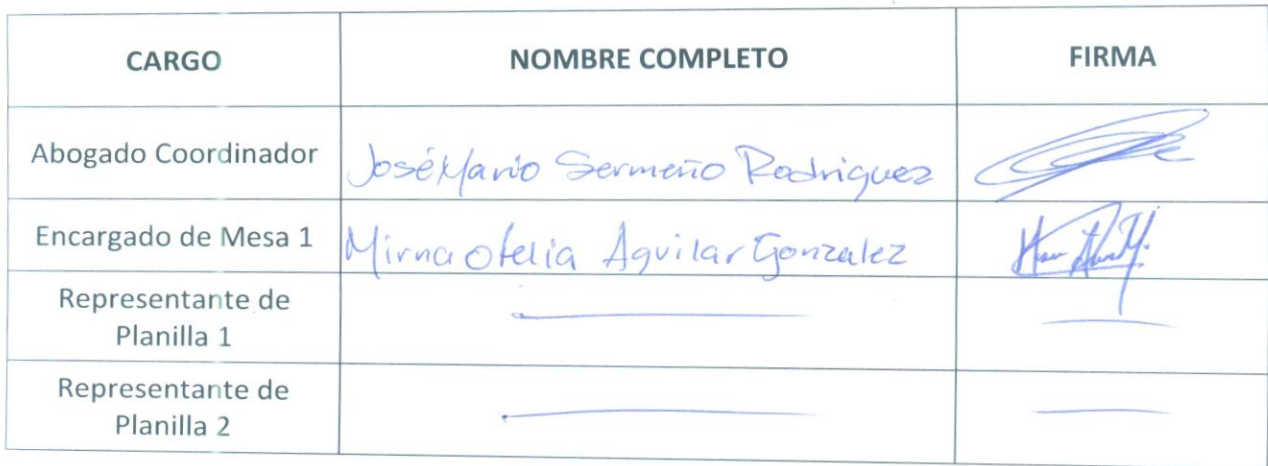 CARGO NOMBRE COMPLETO FIRMA
Abogado Coordinador José Mario Sermeño Rodriguez
Encargado de Mesa 1 Mirna Otelia Aguilar Gonzalez
Representante de
Planilla 1
Representante de
Planilla 2